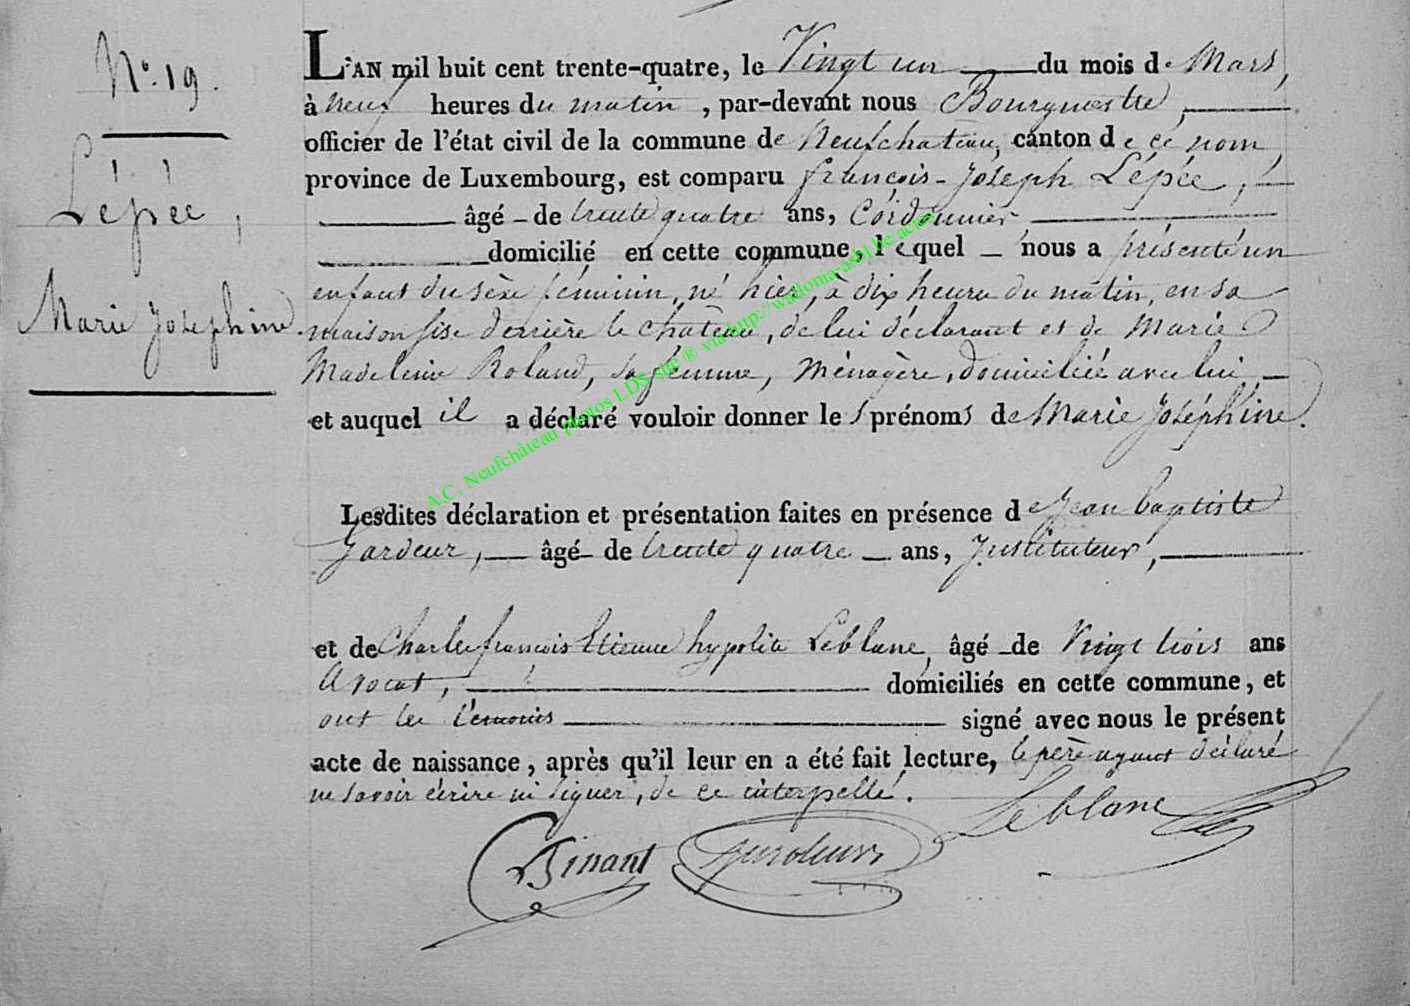 N.º 19.
Lépée,
Marie Joséphine.
L'AN mil huit cent trente-quatre, le Vingt un du mois de Mars,
à neuf heures du matin, par-devant nous Bourgmestre,
officier de l'état civil de la commune de Neufchateau, canton de ce nom,
province de Luxembourg, est comparu françois-Joseph Lépée,
âgé de trente quatre ans, Cordonnier
domicilié en cette commune, lequel nous a présenté un
enfant du sèxe féminin, né hier, à dix heures du matin, en sa
maison sise derrière le chateau, de lui déclarant et de Marie
Madeleine Roland, sa femme, Ménagère, domiciliée avec lui
et auquel il a déclaré vouloir donner les prénoms de Marie Joséphine.
Lesdites déclaration et présentation faites en présence de Jean baptiste
âgé de trente quatre ans, Instituteur,
et de Charles françois Etienne hypolite Leblanc, âgé de Vingt trois ans
Avocat, domiciliés en cette commune, et
ont les témoins signé avec nous le présent
acte de naissance, après qu'il leur en a été fait lecture, le père ayant déclaré
ne savoir écrire ni signer, de ce interpellé.
Leblanc
A.C. Neufchâteau photos LDS site ® via http://wallonia-asbl.be/actes